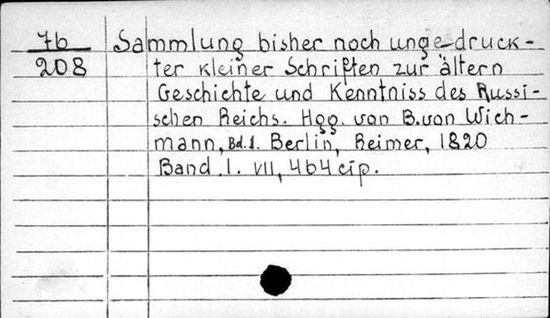 7b Sammlung bisher noch ungedruck-
208 ter kleiner Schriften zur ältern
Geschichte und Kenntniss des Russi-
schen Reichs. Hgg. von B. von Wich-
mann, Bd. 1. Berlin, Reimer, 1820
Band. I. VII, 464 стр.